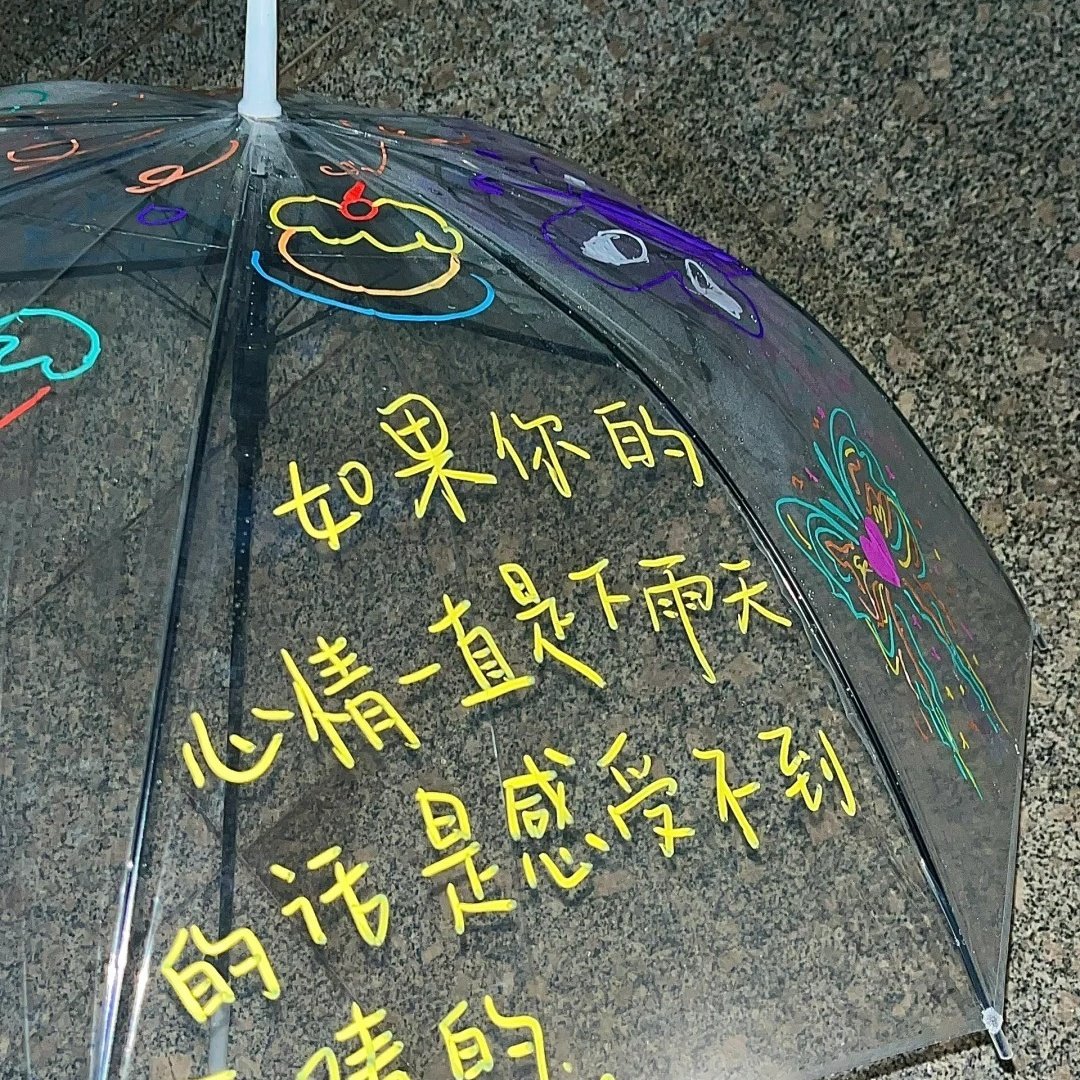 如果你的
心情一直是下雨天
的话是感受不到
晴的